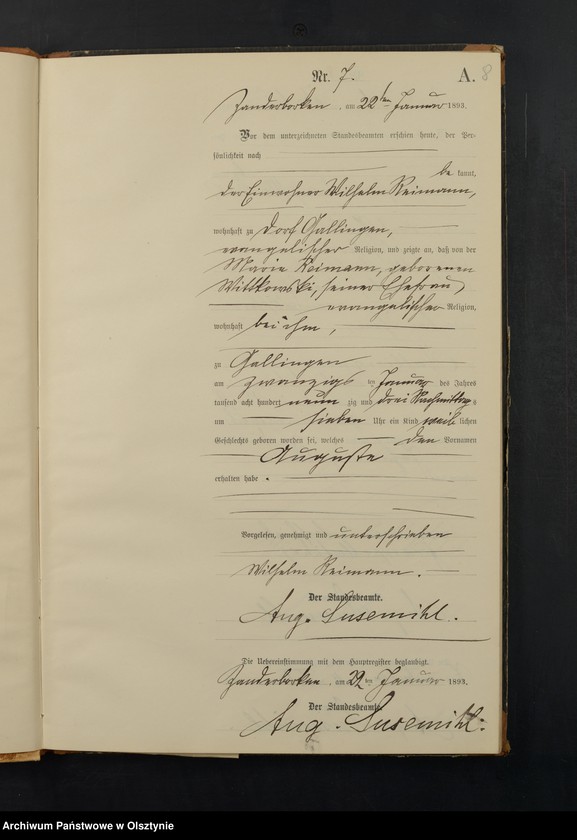 Nr. 7. A. 8
Zanderborken, am 22ten Januar 1893.
Vor dem unterzeichneten Standesbeamten erschien heute, der Per-
sönlichkeit nach
be kannt,
der Einwohner Wilhelm Reimann,
wohnhaft zu Dorf Gallingen,
evangelischer Religion, und zeigte an, daß von der
Marie Reimann, geborenen
Wittkowski, seiner Ehefrau,
evangelischer Religion,
wohnhaft bei ihm,
zu Gallingen
am zwanzigsten Januar des Jahres
tausend acht hundert neun zig und drei Nachmittags
um sieben Uhr ein Kind weib lichen
Geschlechts geboren worden sei, welches den Vornamen
Auguste
erhalten habe.
Vorgelesen, genehmigt und unterschrieben
Wilhelm Reimann.
Der Standesbeamte.
Aug. Susemihl.
Die Uebereinstimmung mit dem Hauptregister beglaubigt.
Zanderborken, am 22ten Januar 1893.
Der Standesbeamte.
Aug. Susemihl.
Archiwum Państwowe w Olsztynie